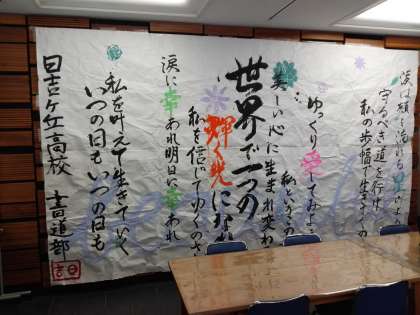 守るべき道を行け
私の歩幅で生き
ゆっくり愛してみよう
私という
美しい心に生まれ変わ
世界で一つの
輝く光にな
私を信じてゆくのさ
涙に幸あれ明日に幸あれ
私を叶えて生きていく
いつの日もいつの日も
日吉ケ丘高校 書道部
日吉